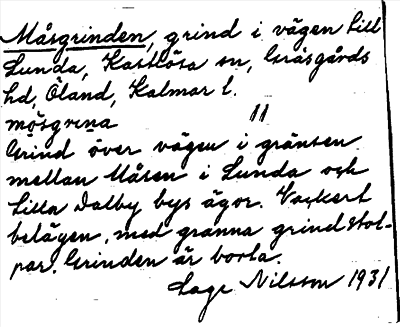 Måsgrinden, grind i vägen till
Lunda, Kastlösa sn, Gräsgårds
hd, Öland, Kalmar l.
mȯsgrɩna 11
Grind över vägen i gränsen
mellan Måsen i Lunda och
Lilla Dalby bys ägor. Vackert
belägen, med granna grindstol-
par. Grinden är borta.
Lage Nilsson 1931